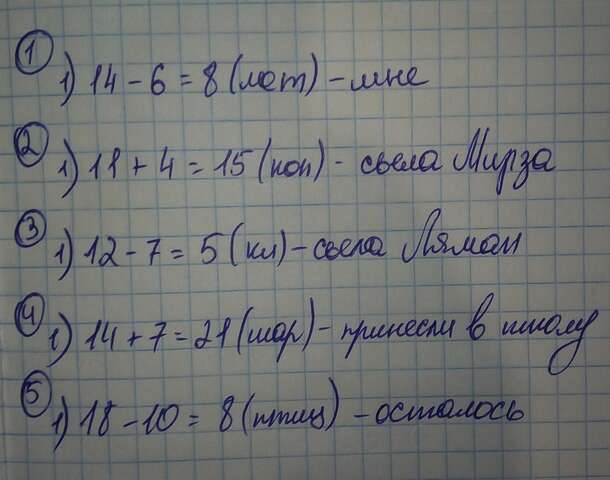 1
1) 14 - 6 = 8 (лет) - мне
2
1) 11 + 4 = 15 (коп) - сьела Мирза
3
1) 12 - 7 = 5 (кл) - сьела Ляман
4
1) 14 + 7 = 21 (шар) - принесли в школу
5
1) 18 - 10 = 8 (птиц) - осталось